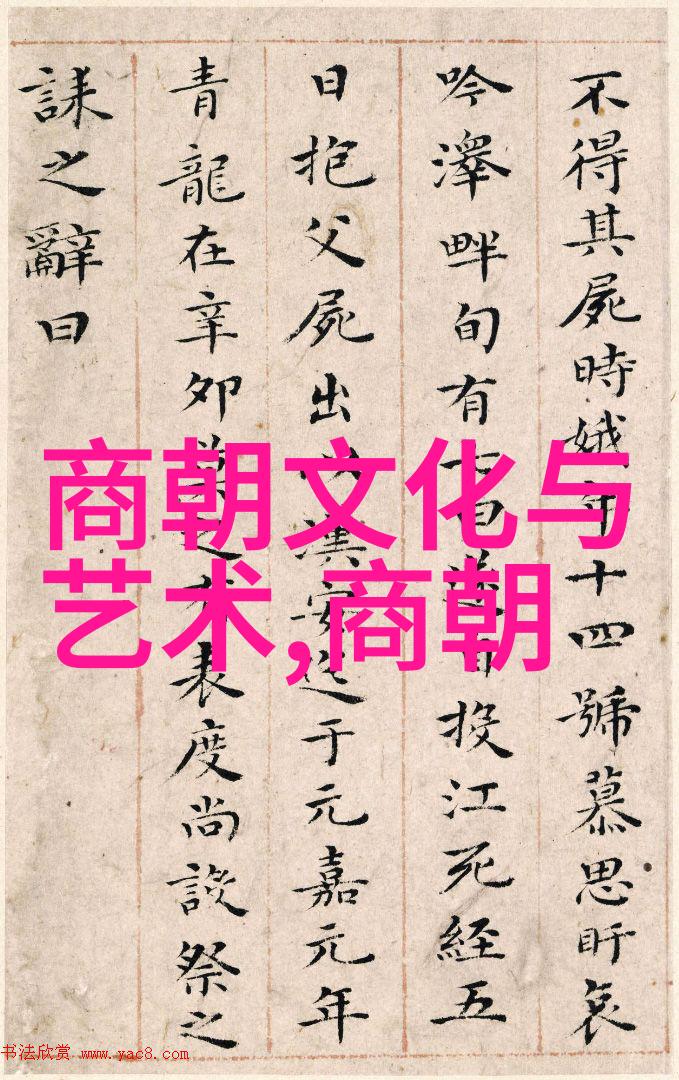 不得其屍時娥年十四號慕思盱哀
吟澤畔旬有七日遂自投江死經五
日抱父屍出以漢安迄于元嘉元年
青龍在辛夘莫之有表度尚設祭之
誄之辭曰
商朝文化与
艺术,商朝
书法欣赏 www.yac8.com